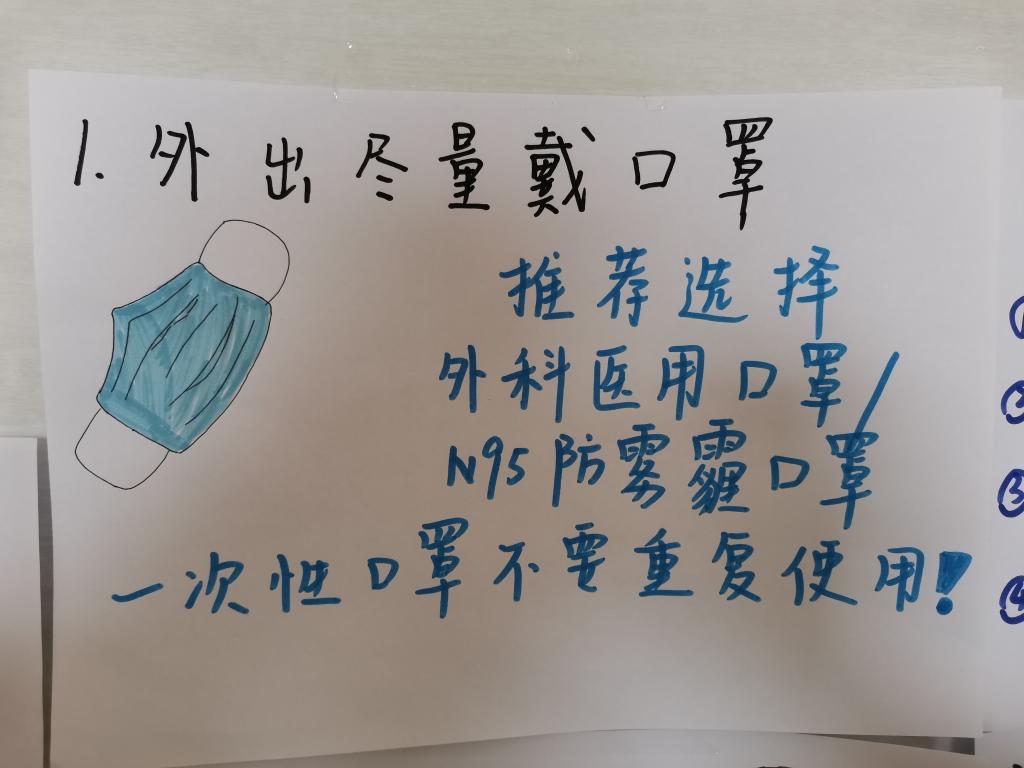 1.外出尽量戴口罩
推荐选择
外科医用口罩/
N95防雾霾口罩
一次性口罩不要重复使用!
②
③
④